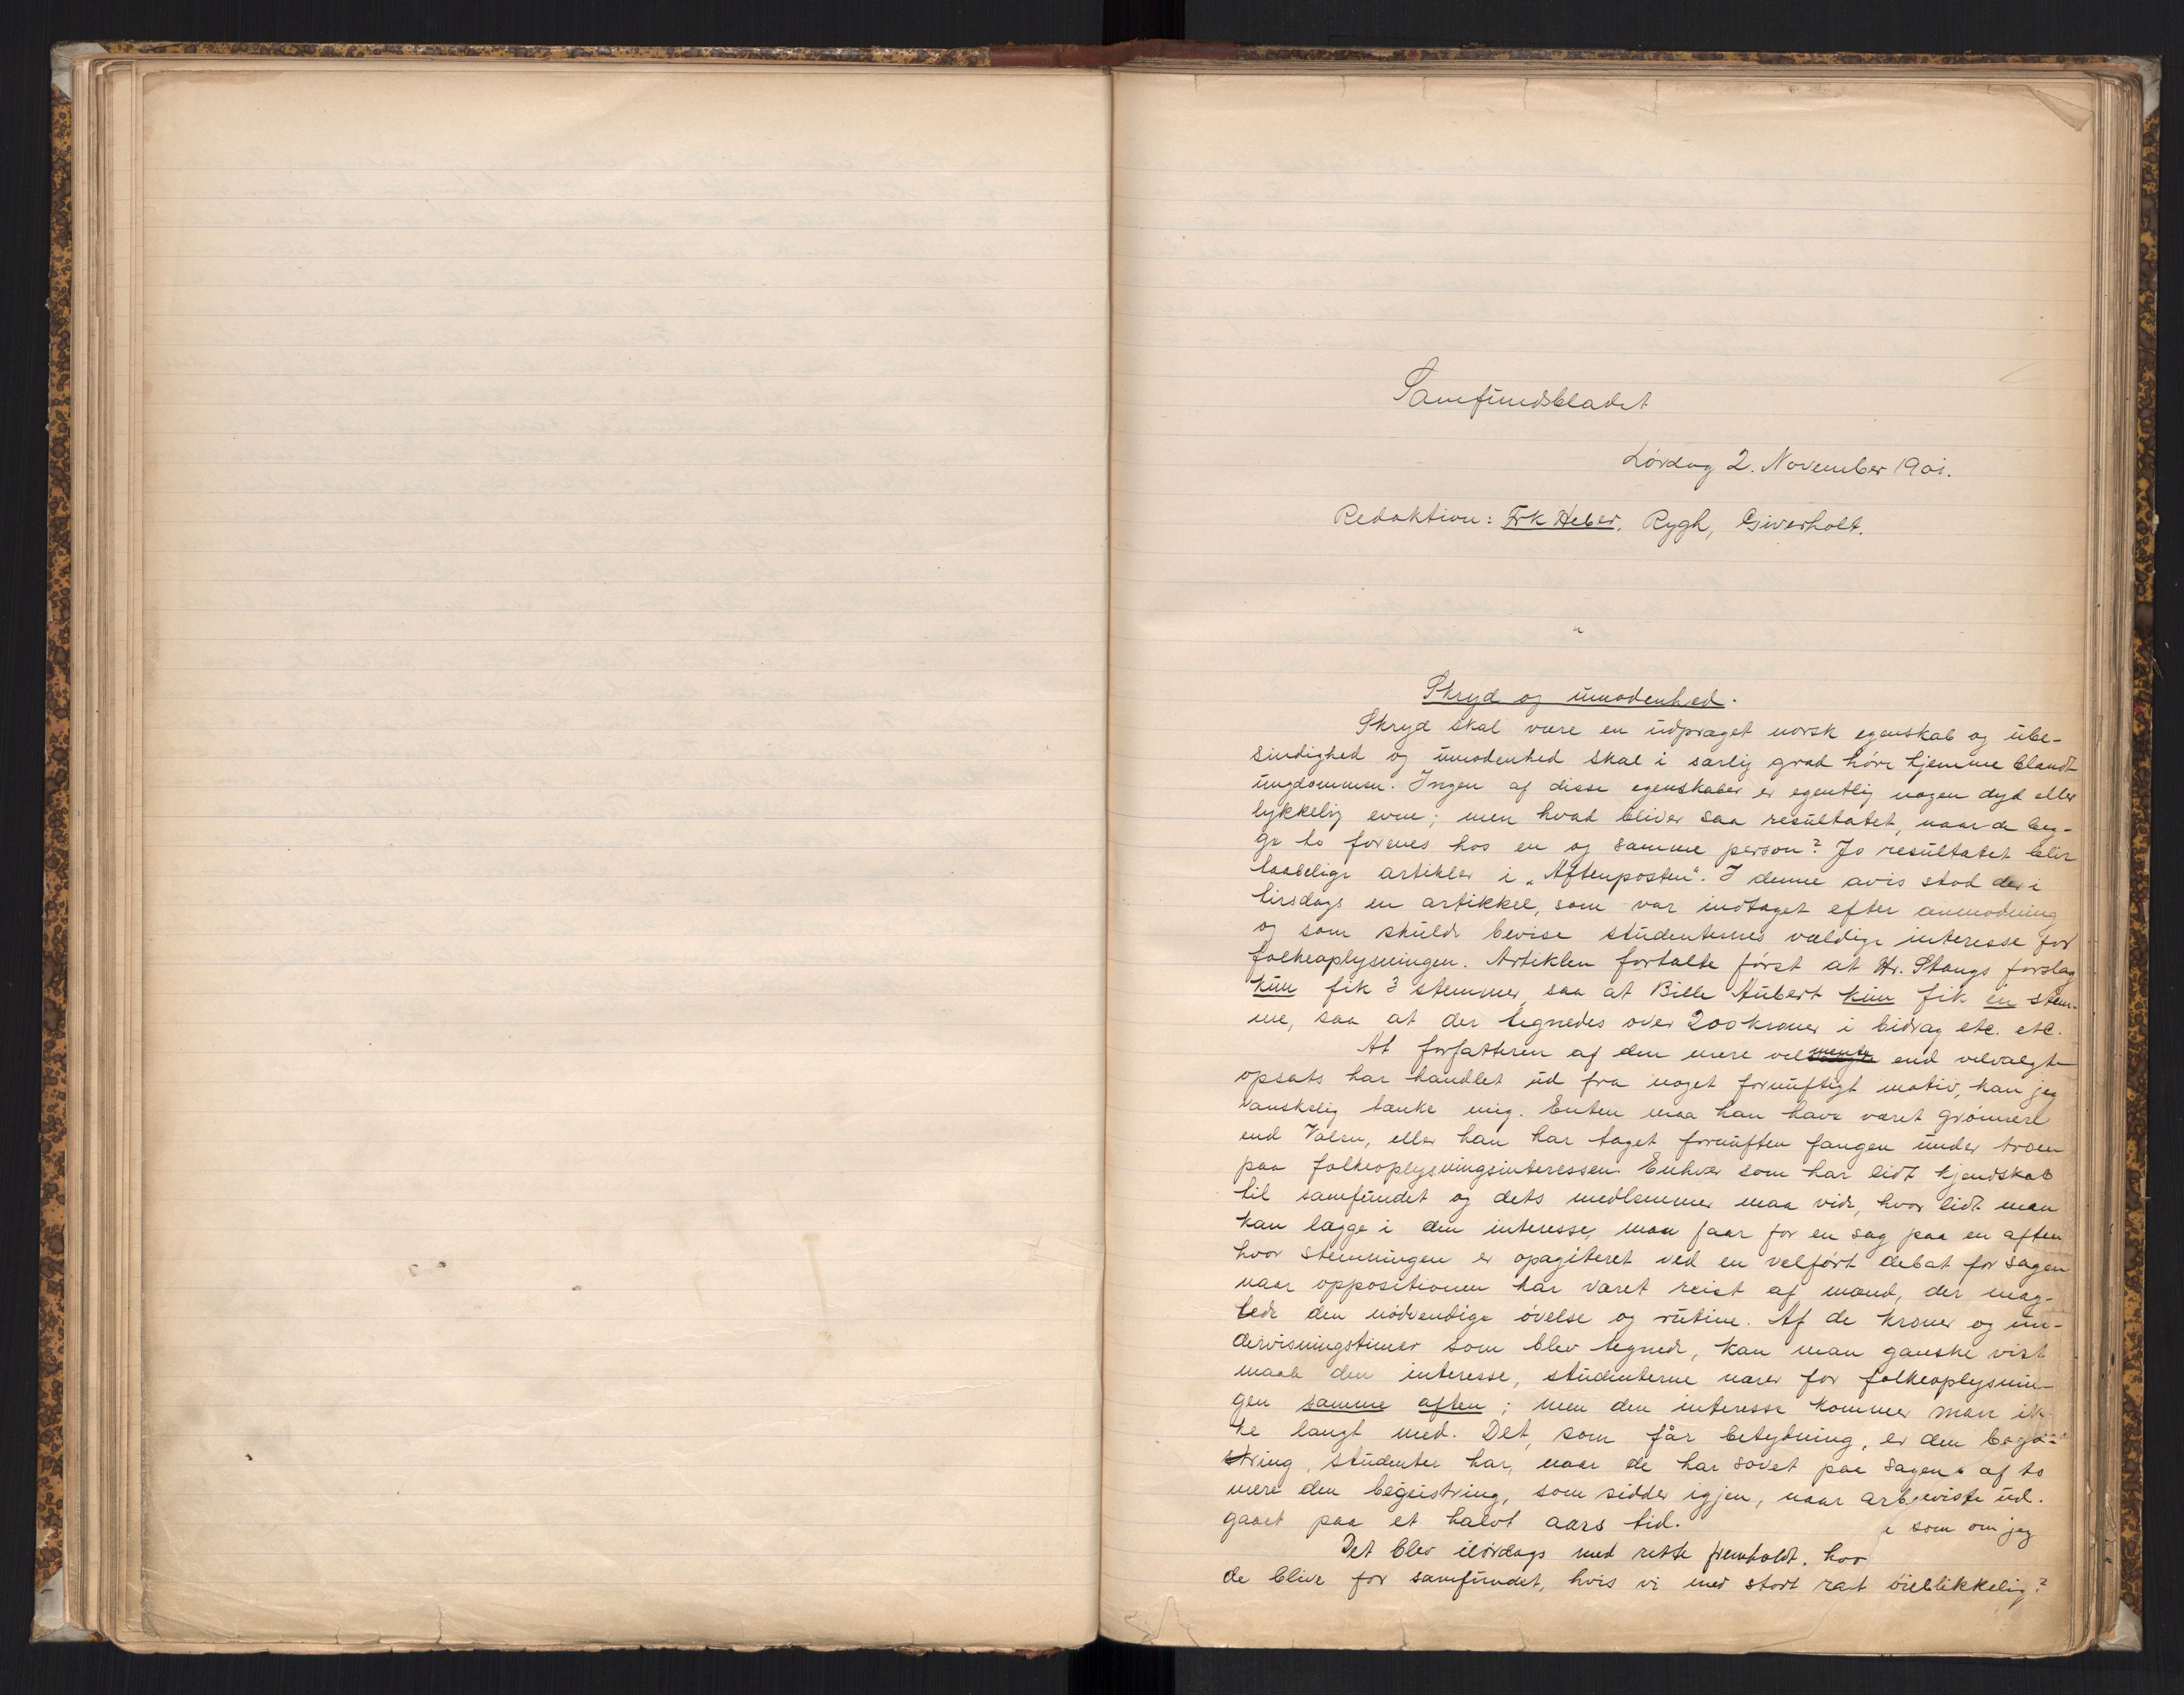 Samfundsbladet
Lördag 2. November 1901.
Redaktion: Frk Heber, Rygh, Giverholt.
Skryd og umodenhed.
Skryd skal være en udpræget norsk egenskab og ube-
sindighed og umodenhed skal i særlig grad höre hjemme blandt
ungdommen. Ingen af disse egenskaber er egentlig nogen dyd eller
lykkelig evne; men hvad bliver saa resultatet, naar de beg-
ge to forenes hos en og samme person? Jo resultatet blir
taabelige artikler i „Aftenposten". I denne avis stod der i
tirsdags en artikkel, som var indtaget efter anmodning
og som skulde bevise studenternes vældige interesse for
folkeoplysningen. Artiklen fortalte först at Hr. Stangs forslag
kun fik 3 stemmer, saa at Bille Aubert kun fik én stem-
me, saa at der tegnedes over 200 kroner i bidrag etc. etc.
At forfatteren af den mere velmente end velvalgte
opsats har handlet ud fra noget fornuftigt motiv, kan jeg
vanskelig tænke mig. Enten maa han have været grönnere
end Volsen, eller han har taget fornuften fangen under troen
paa folkeoplysningsinteressen. Enhver som har lidt kjendskab
til samfundet og dets medlemmer maa vide, hvor lidt man
kan lægge i den interesse, man faar for en sag paa en aften
hvor stemningen er opagiteret ved en velfört debat for sagen
naar oppositionen har været reist af mænd, der mag-
lede den nödvendige övelse og rutine. Af de kroner og un-
dervisningstimer som blev tegnede, kan man ganske vist
maale den interesse, studenterne nærer for folkeoplysnin-
gen samme aften; men den interesse kommer man ik-
ke langt med. Det, som får betydning, er den begei-
string, studenter har, naar de har sovet paa sagen af to
mere den begeistring, som sidder igjen, naar
gaaet paa et halvt aars tid.
som om jeg
Det blev ilördags med rette fremholdt, hvor
de blive for samfundet, hvis vi med stort rast öieblikkelig?